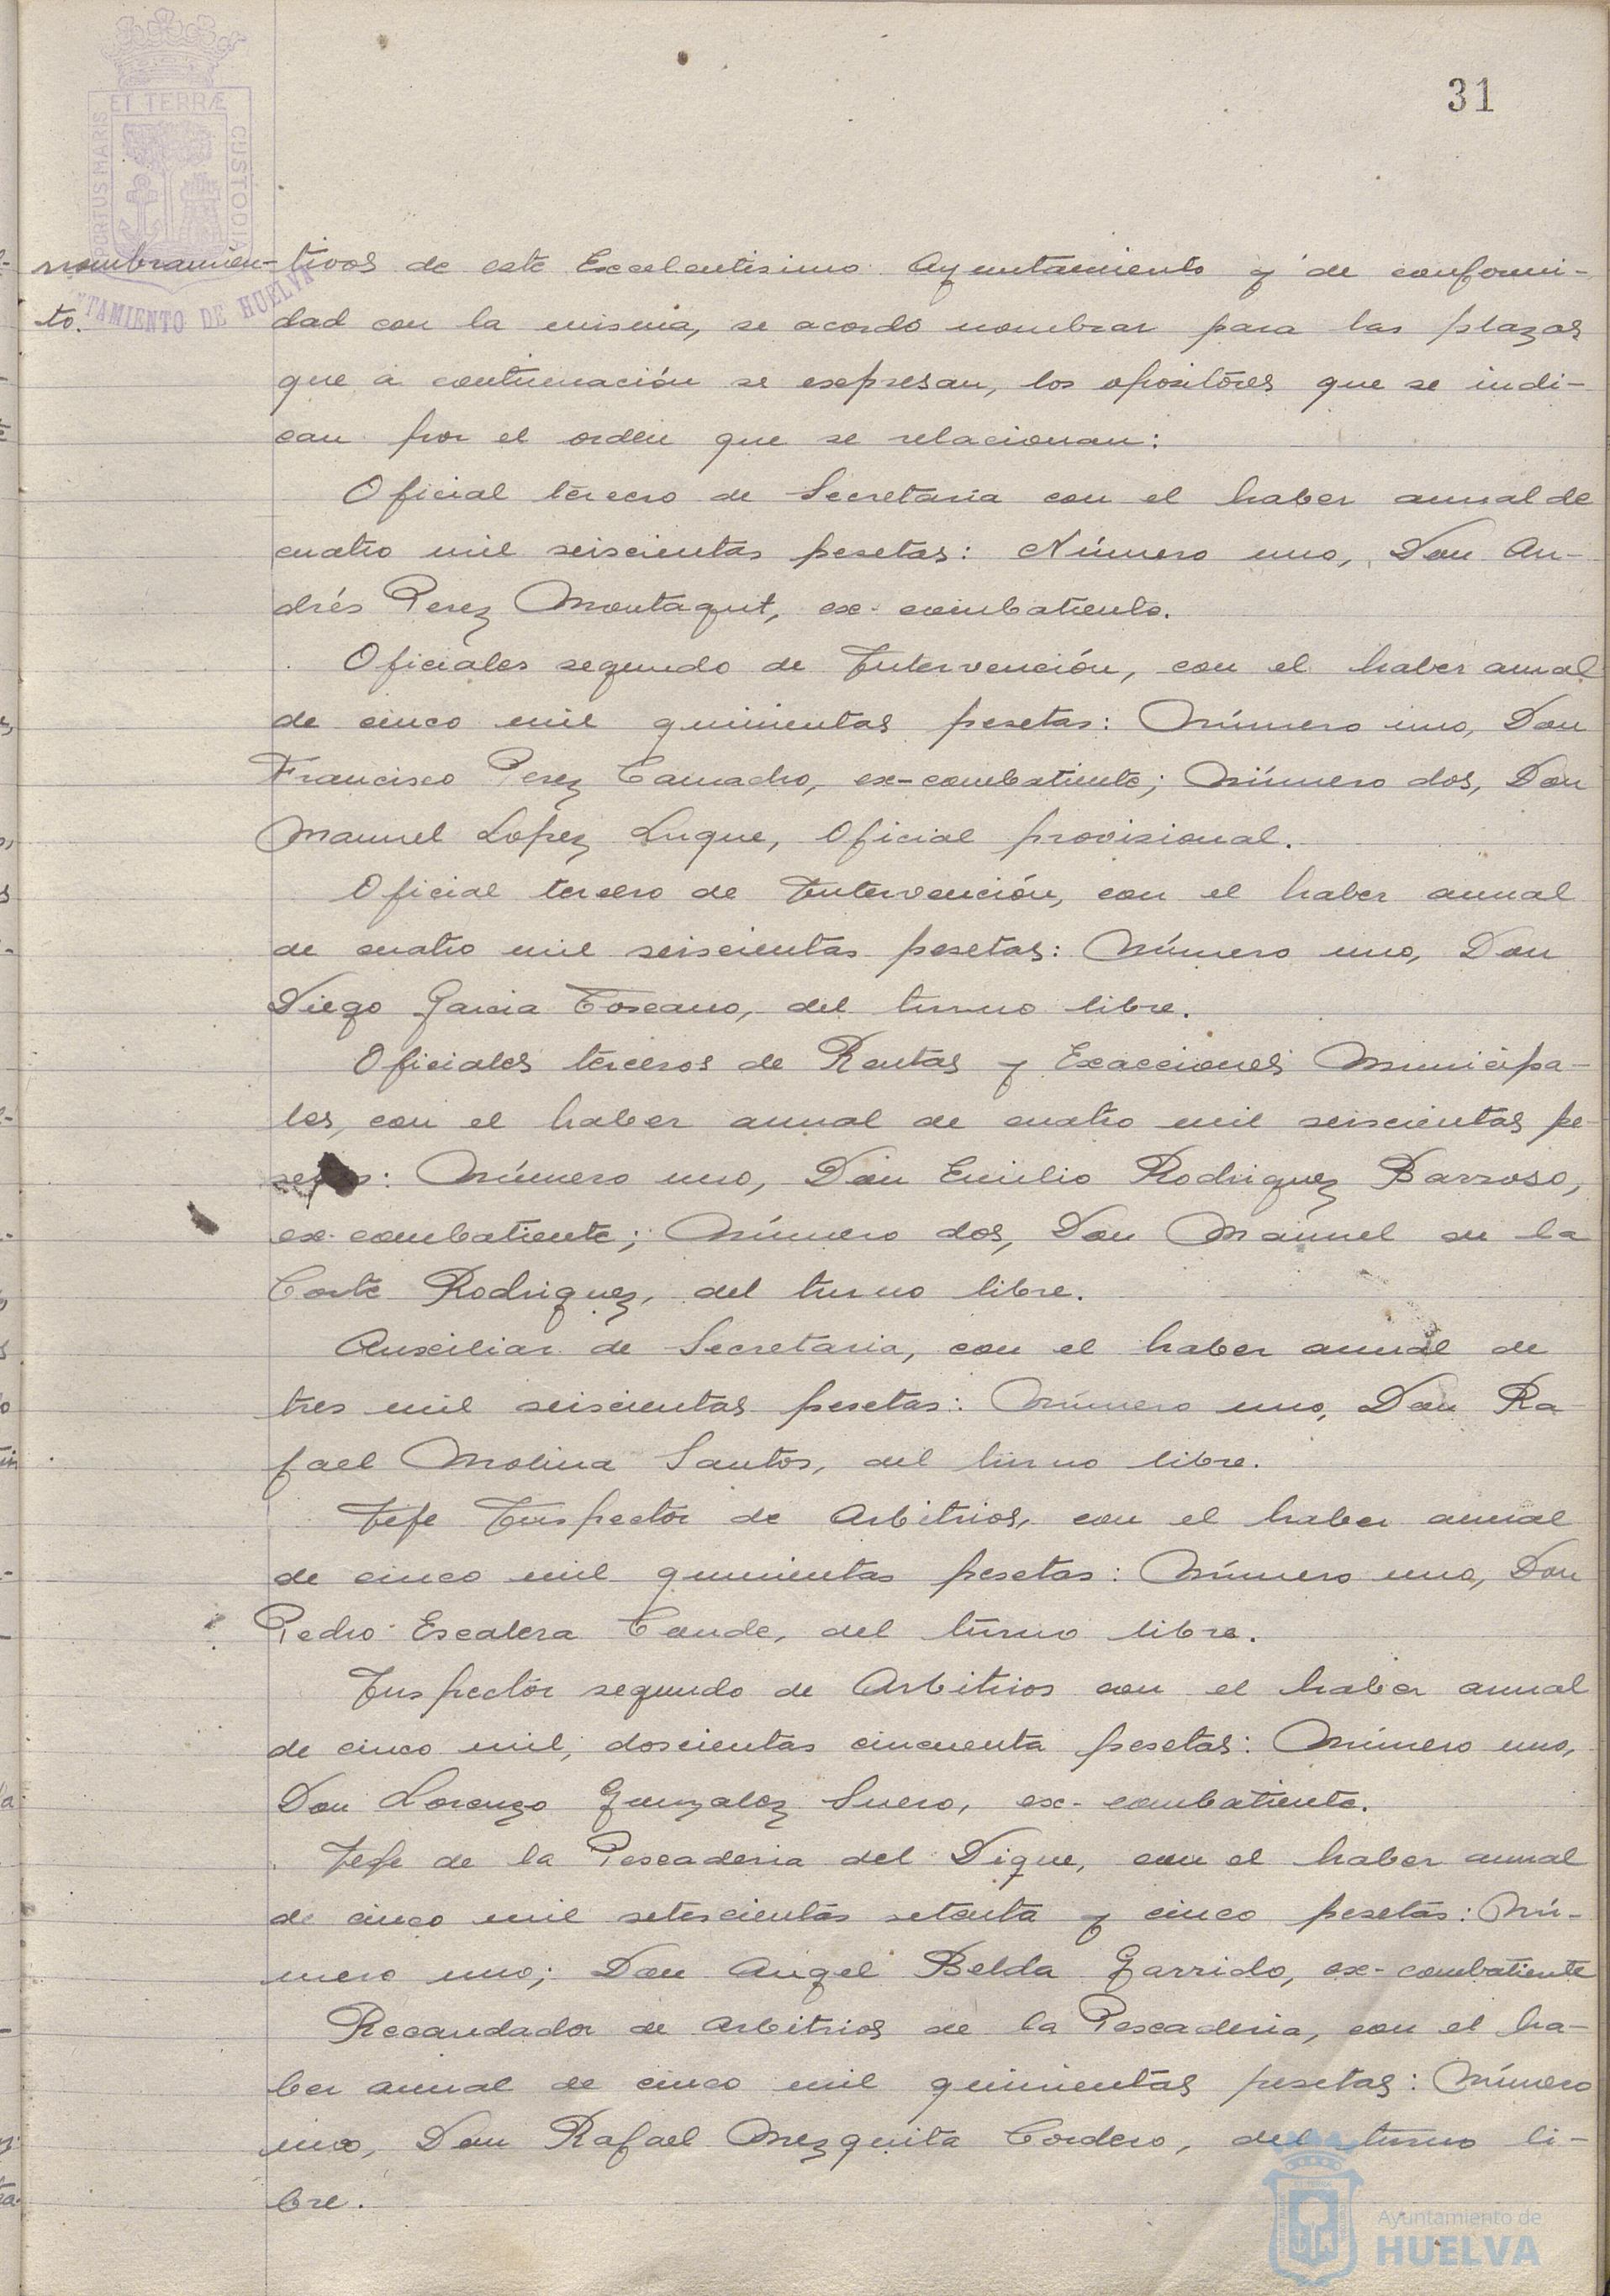 31
PORTUS MARIS ET TERRÆ CUSTODIA
AYUNTAMIENTO DE HUELVA
nombramien-
to.
tivos de este Excelentisimo Ayuntamiento y de conformi-
dad con la misma, se acordó nombrar para las plazas
que á continuación se expresan, los opositores que se indi-
can por el orden que se relacionan:
Oficial tercero de Secretaria con el haber anual de
cuatro mil seiscientas pesetas: Número uno, Don An-
drés Perez Montaqut, ex-combatiente.
Oficiales segundo de Intervención, con el haber anual
de cinco mil quinientas pesetas: Número uno, Don
Francisco Perez Camacho, ex-combatiente; Número dos, Don
Manuel Lopez Luque, Oficial provisional.
Oficial tercero de Intervención, con el haber anual
de cuatro mil seiscientas pesetas: Número uno, Don
Diego Garcia Toscano, del turno libre.
Oficiales terceros de Rentas y Exacciones Municipa-
les, con el haber anual de cuatro mil seiscientas pe-
setas: Número uno, Don Emilio Rodriguez Barroso,
ex-combatiente; Número dos, Don Manuel de la
Corte Rodriguez, del turno libre.
Auxiliar de Secretaria, con el haber anual de
tres mil seiscientas pesetas: Número uno, Don Ra-
fael Molina Santos, del turno libre.
Jefe Inspector de Arbitrios, con el haber anual
de cinco mil quinientas pesetas: Número uno, Don
Pedro Escalera Conde, del turno libre.
Inspector segundo de Arbitrios con el haber anual
de cinco mil, doscientas cincuenta pesetas: Número uno,
Don Lorenzo Gonzalez Suero, ex-combatiente.
Jefe de la Pescaderia del Dique, con el haber anual
de cinco mil setescientas setenta y cinco pesetas: Nú-
mero uno; Don Angel Belda Garrido, ex-combatiente
Recaudador de Arbitrios de la Pescaderia, con el ha-
ber anual de cinco mil quinientas pesetas: Número
uno, Don Rafael Mezquita Cordero, del turno li-
bre.
Ayuntamiento de
HUELVA